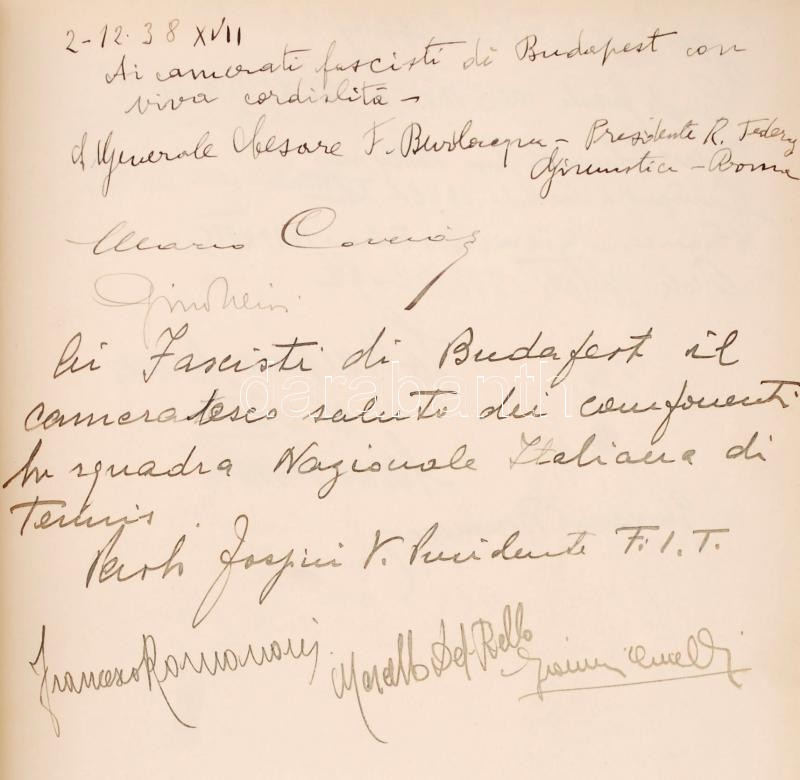 2-12.38 XVII
Ai camerati fascisti di Budapest con
viva cordialità -
Il Generale Cesare F. - Presidente R. Feder
Ginnastica - Roma
Mario
Ai Fascisti di Budapest il
cameratesco saluto dei componenti
la squadra Nazionale Italiana di
Tennis.
V. Presidente F.I.T.
Francesco Romanoni
Marcello Del Bello
darabanth